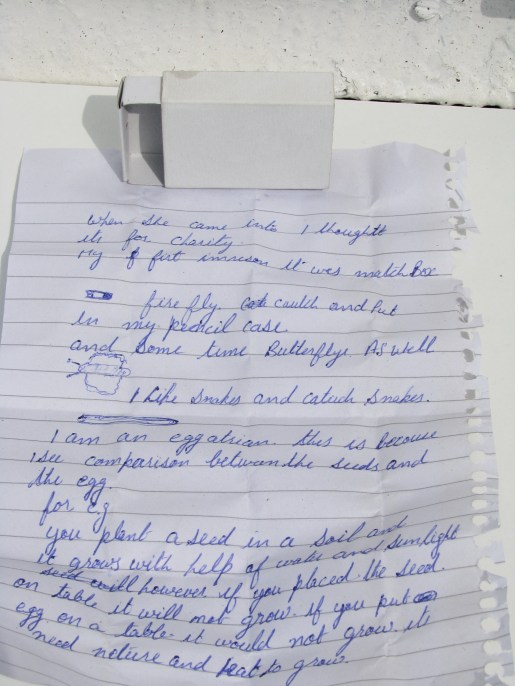 When she came into I thought
its for charity.
My first imrison it was match Box
fire fly. caulch and Put
in my pencil case
and some time Butterflye As well
I Like snakes and catuch snakes.
I am an eggatrian. this is because
I see comparison between the seeds and
the egg
for eg
you plant a seed in a soil and
it grows with help of water and sunlight
seed will however if you placed the seed
on table it will not grow. If you put
egg on a table it would not grow. its
need neture and heat to grow.